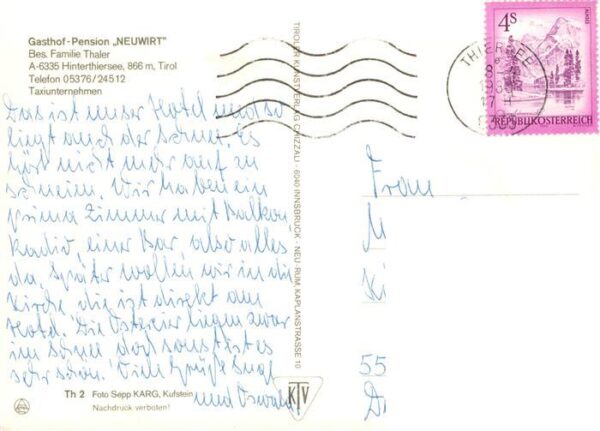 Gasthof-Pension „NEUWIRT"
Bes. Familie Thaler
A-6335 Hinterthiersee, 866 m, Tirol
Telefon 05376/24512
Taxiunternehmen
Das ist unser Hotel und so
liegt auch der Schnee. Es
hört nicht mehr auf zu
schneien. Wir haben ein
prima Zimmer mit Balkon,
Radio, einer Bar, also alles
da. Später wollen wir in die
Kirche die ist direkt am
Hotel. Die Ostereier liegen zwar
im Schnee doch sonst ist es
sehr schön. Viele Grüße
und Oswald
Th 2 Foto Sepp KARG, Kufstein
Nachdruck verboten!
TIROLER KUNSTVERLAG CHIZZALI · 6040 INNSBRUCK - NEU-RUM, KAPLANSTRASSE 10
KTV
THIERSEE
4S
REPUBLIK ÖSTERREICH
Frau
M
Ki
55
D